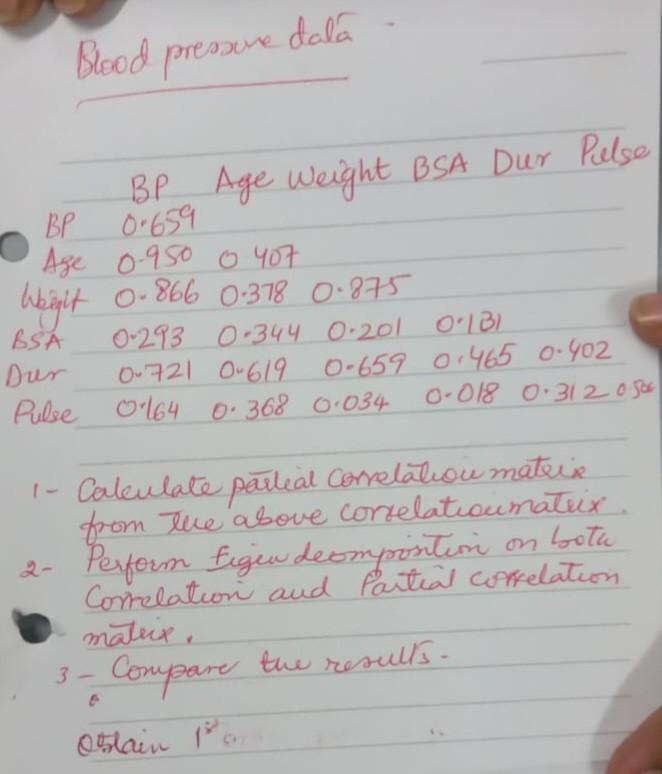 Blood pressure data
BP Age Weight BSA Dur Pulse
BP 0.659
Age 0.950 0 407
Weight 0.866 0.378 0.875
BSA 0.293 0.344 0.201 0.131
Dur 0.721 0.619 0.659 0.465 0.402
Pulse 0.164 0.368 0.034 0.018 0.312
1- Calculate partial correlation matrix
from the above correlation matrix.
2- Perform Eigen decomposition on both
Correlation and Partial correlation
matrix.
3- Compare the results.
Obtain 1st